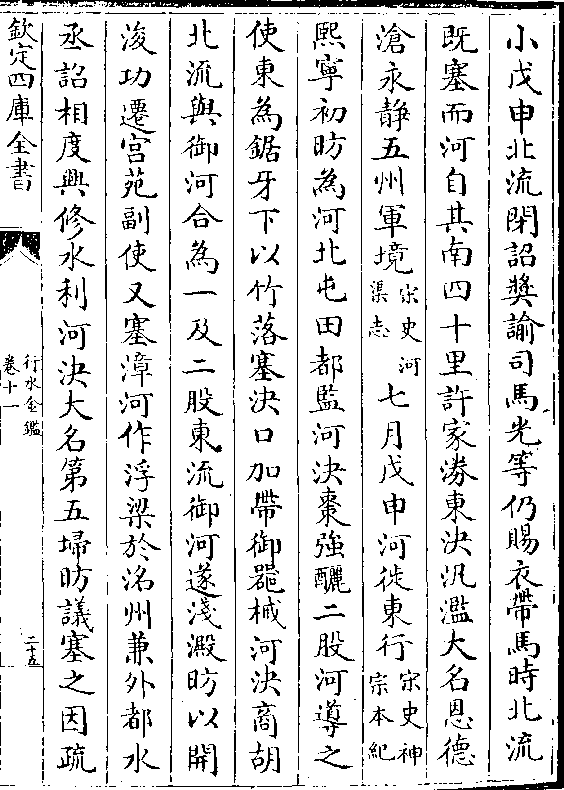 小戊申北流閉詔奬諭司馬光等仍賜衣帶馬時北流
既塞而河自其南四十里許家港東決汎濫大名恩德
滄永静五州軍境宋史河渠志七月戊申河徙東行宋史神宗本紀
熙寧初昉為河北屯田都監河決棗強釃二股河導之
使東為鋸牙下以竹落塞決口加帶御器械河決商胡
北流與御河合為一及二股東流御河遂淺澱昉以開
浚功遷宫苑副使又塞漳河作浮梁於洺州兼外都水
丞詔相度興修水利河決大名第五埽昉議塞之因疏
欽定四庫全書
行水金鑑
卷十一
二十五